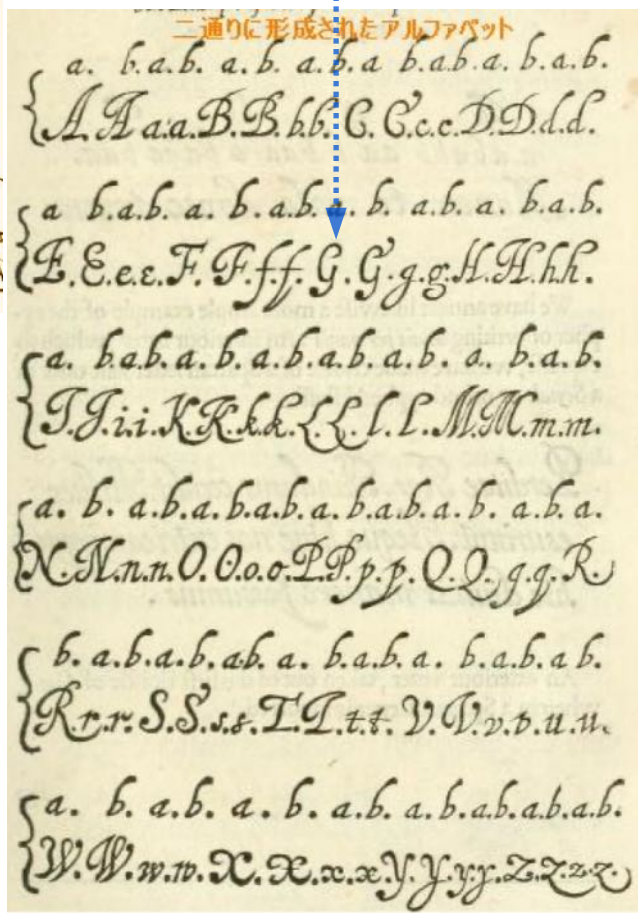 二通りに形成されたアルファベット
a. b.a.b. a.b. a.b.a b.a.b.a. b.a.b.
A.A a.a.B.B.b.b. C.C.c.c.D.D.d.d.
a b.a.b. a. b.a.b.a. b. a.b.a. b.a.b.
E.E.e.e.F.F.f.f.G.G.g.g.H.H.h.h.
a. b.a.b.a. b.a.b.a.b.a.b.a.b. a. b.a.b.
I.I.i.i.K.K.k.k.L.L.l.l.M.M.m.m.
a. b. a.b.a.b.a.b.a.b.a.b.a.b. a.b.a.
N.N.n.n.O.O.o.o.P.P.p.p.Q.Q.q.q.R.
b. a.b.a.b.a.b. a. b.a.b.a. b.a.b.a.b.
R.r.r.S.S.s.s.T.T.t.t.V.V.v.v.u.u.
a. b. a.b. a. b. a.b. a.b.a.b.a.b.a.b.
W.W.w.w.X.X.x.x.Y.Y.y.y.Z.Z.z.z.